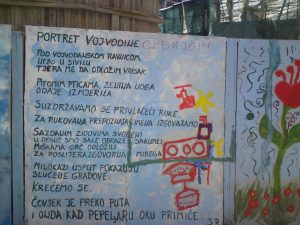 PORTRET VOJVODINE
POD VOJVOĐANSKOM RAVNICOM,
UEZO U SIVILU
TJERA ME DA ODLOŽIM VRŠAK
PITOMIM PTICAMA, ZELJINA LOGA
ODAJE IZMJERILA.
SUZDRŽAVAMO SE PRIVLAČEĆI RUKE
ZA RUKOVANJA PREPOZNATA, IMENA IZGOVARAMO
SAZDANIM ZIDOVIMA SVOĐENI
U DEŠNJE SMO ŠAKE OBRAZE SAKUPILI
MIŠKAMA GRČ ODLOŽILI
ZA POSLIJERAZGOVORJA MIRENJA
MILOKAZI USPUT POKAZUJU
SLUĆENE GRADOVE.
KREĆEMO SE.
ČOVJEK JE PREKO PUTA
I ONDA KAD PEPELJARU OKU PRIMIČE.
S.R